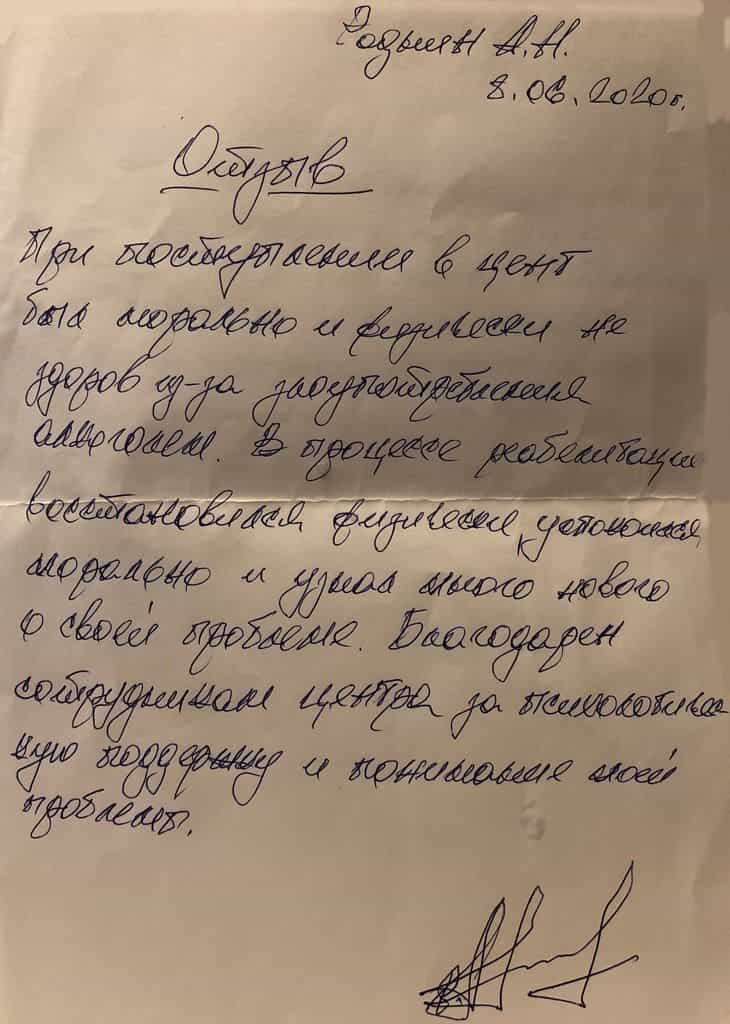 Родькин А.Н.
8.06.2020г.
Отзыв
При поступлении в цент
был морально и физически не
здоров из-за злоупотребления
алкоголем. В процессе реабелитации
восстановился физически, успокоился
морально и узнал много нового
о своей проблеме. Благодарен
сотрудникам центра за психологичес
кую поддержку и понимание моей
проблемы.